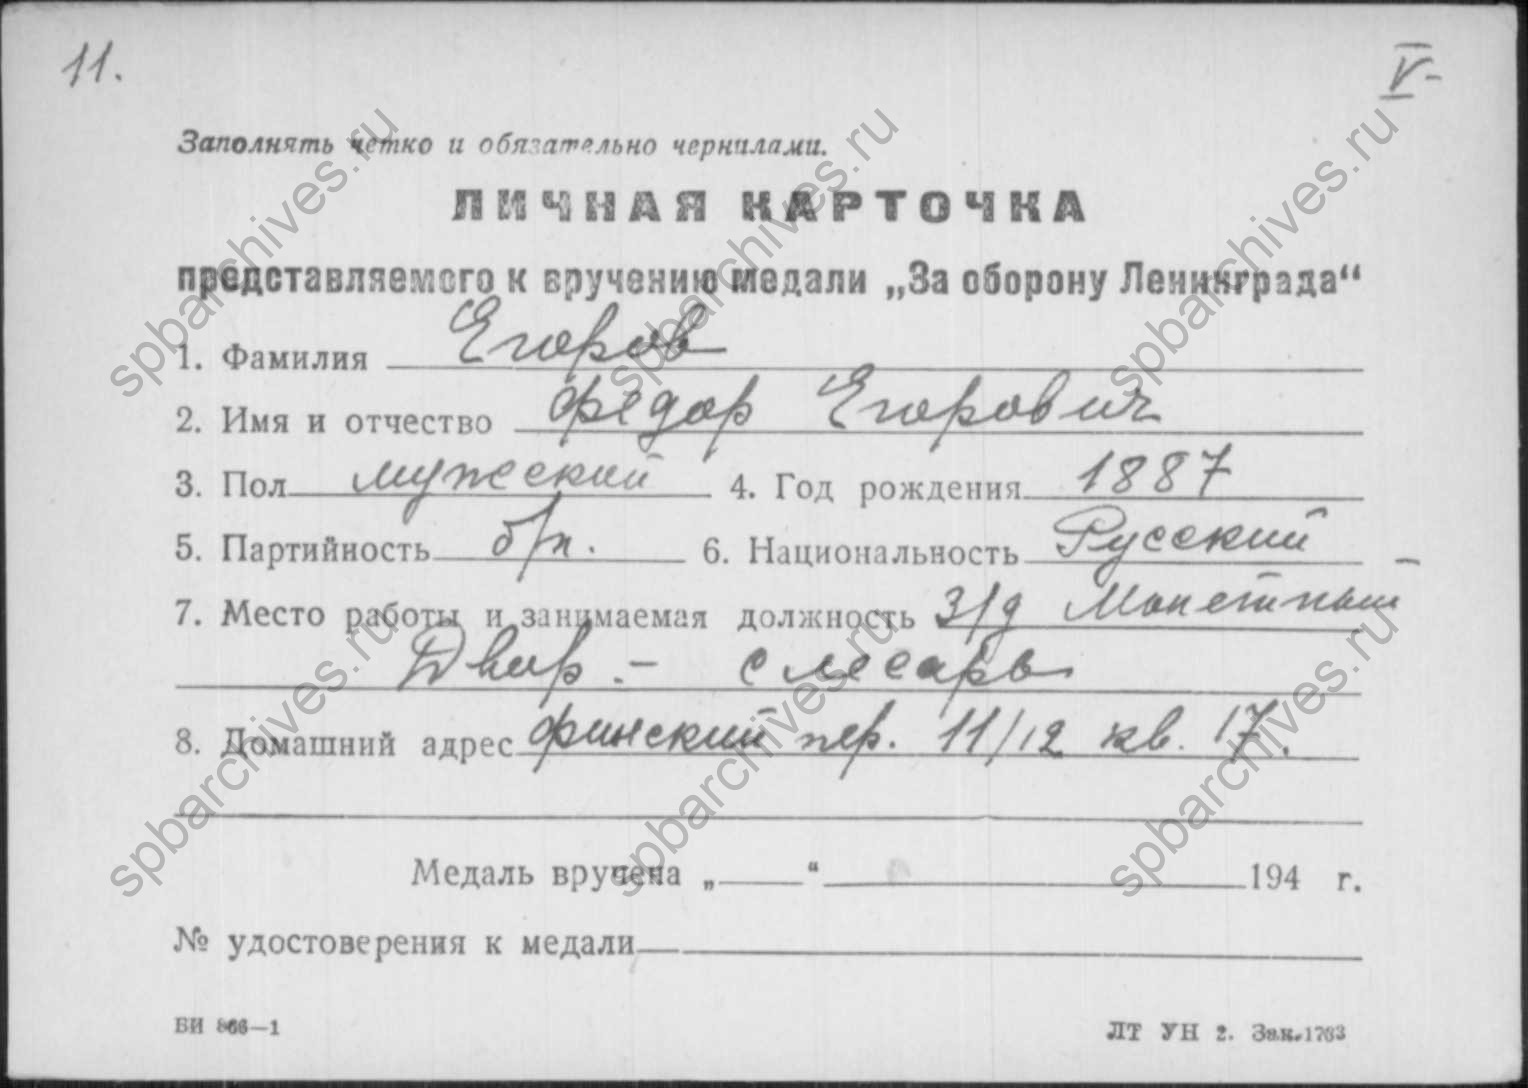 11.
V-
Заполнять четко и обязательно чернилами.
ЛИЧНАЯ КАРТОЧКА
представляемого к вручению медали „За оборону Ленинграда“
1. Фамилия Егоров
2. Имя и отчество Федор Егорович
3. Пол мужской 4. Год рождения 1887
5. Партийность б/п. 6. Национальность Русский
7. Место работы и занимаемая должность З/д Монетный
Двор. – слесарь
8. Домашний адрес Финский пер. 11/12 кв. 17.
Медаль вручена „ “ 194 г.
№ удостоверения к медали
БИ 866—1
ЛТ УН 2. Зак. 1763
spbarchives.ru
spbarchives.ru
spbarchives.ru
spbarchives.ru
spbarchives.ru
spbarchives.ru